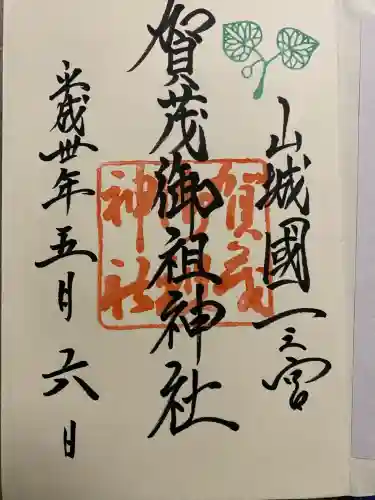 山城國一之宮
賀茂御祖神社
平成卅年五月六日
賀茂御祖神社